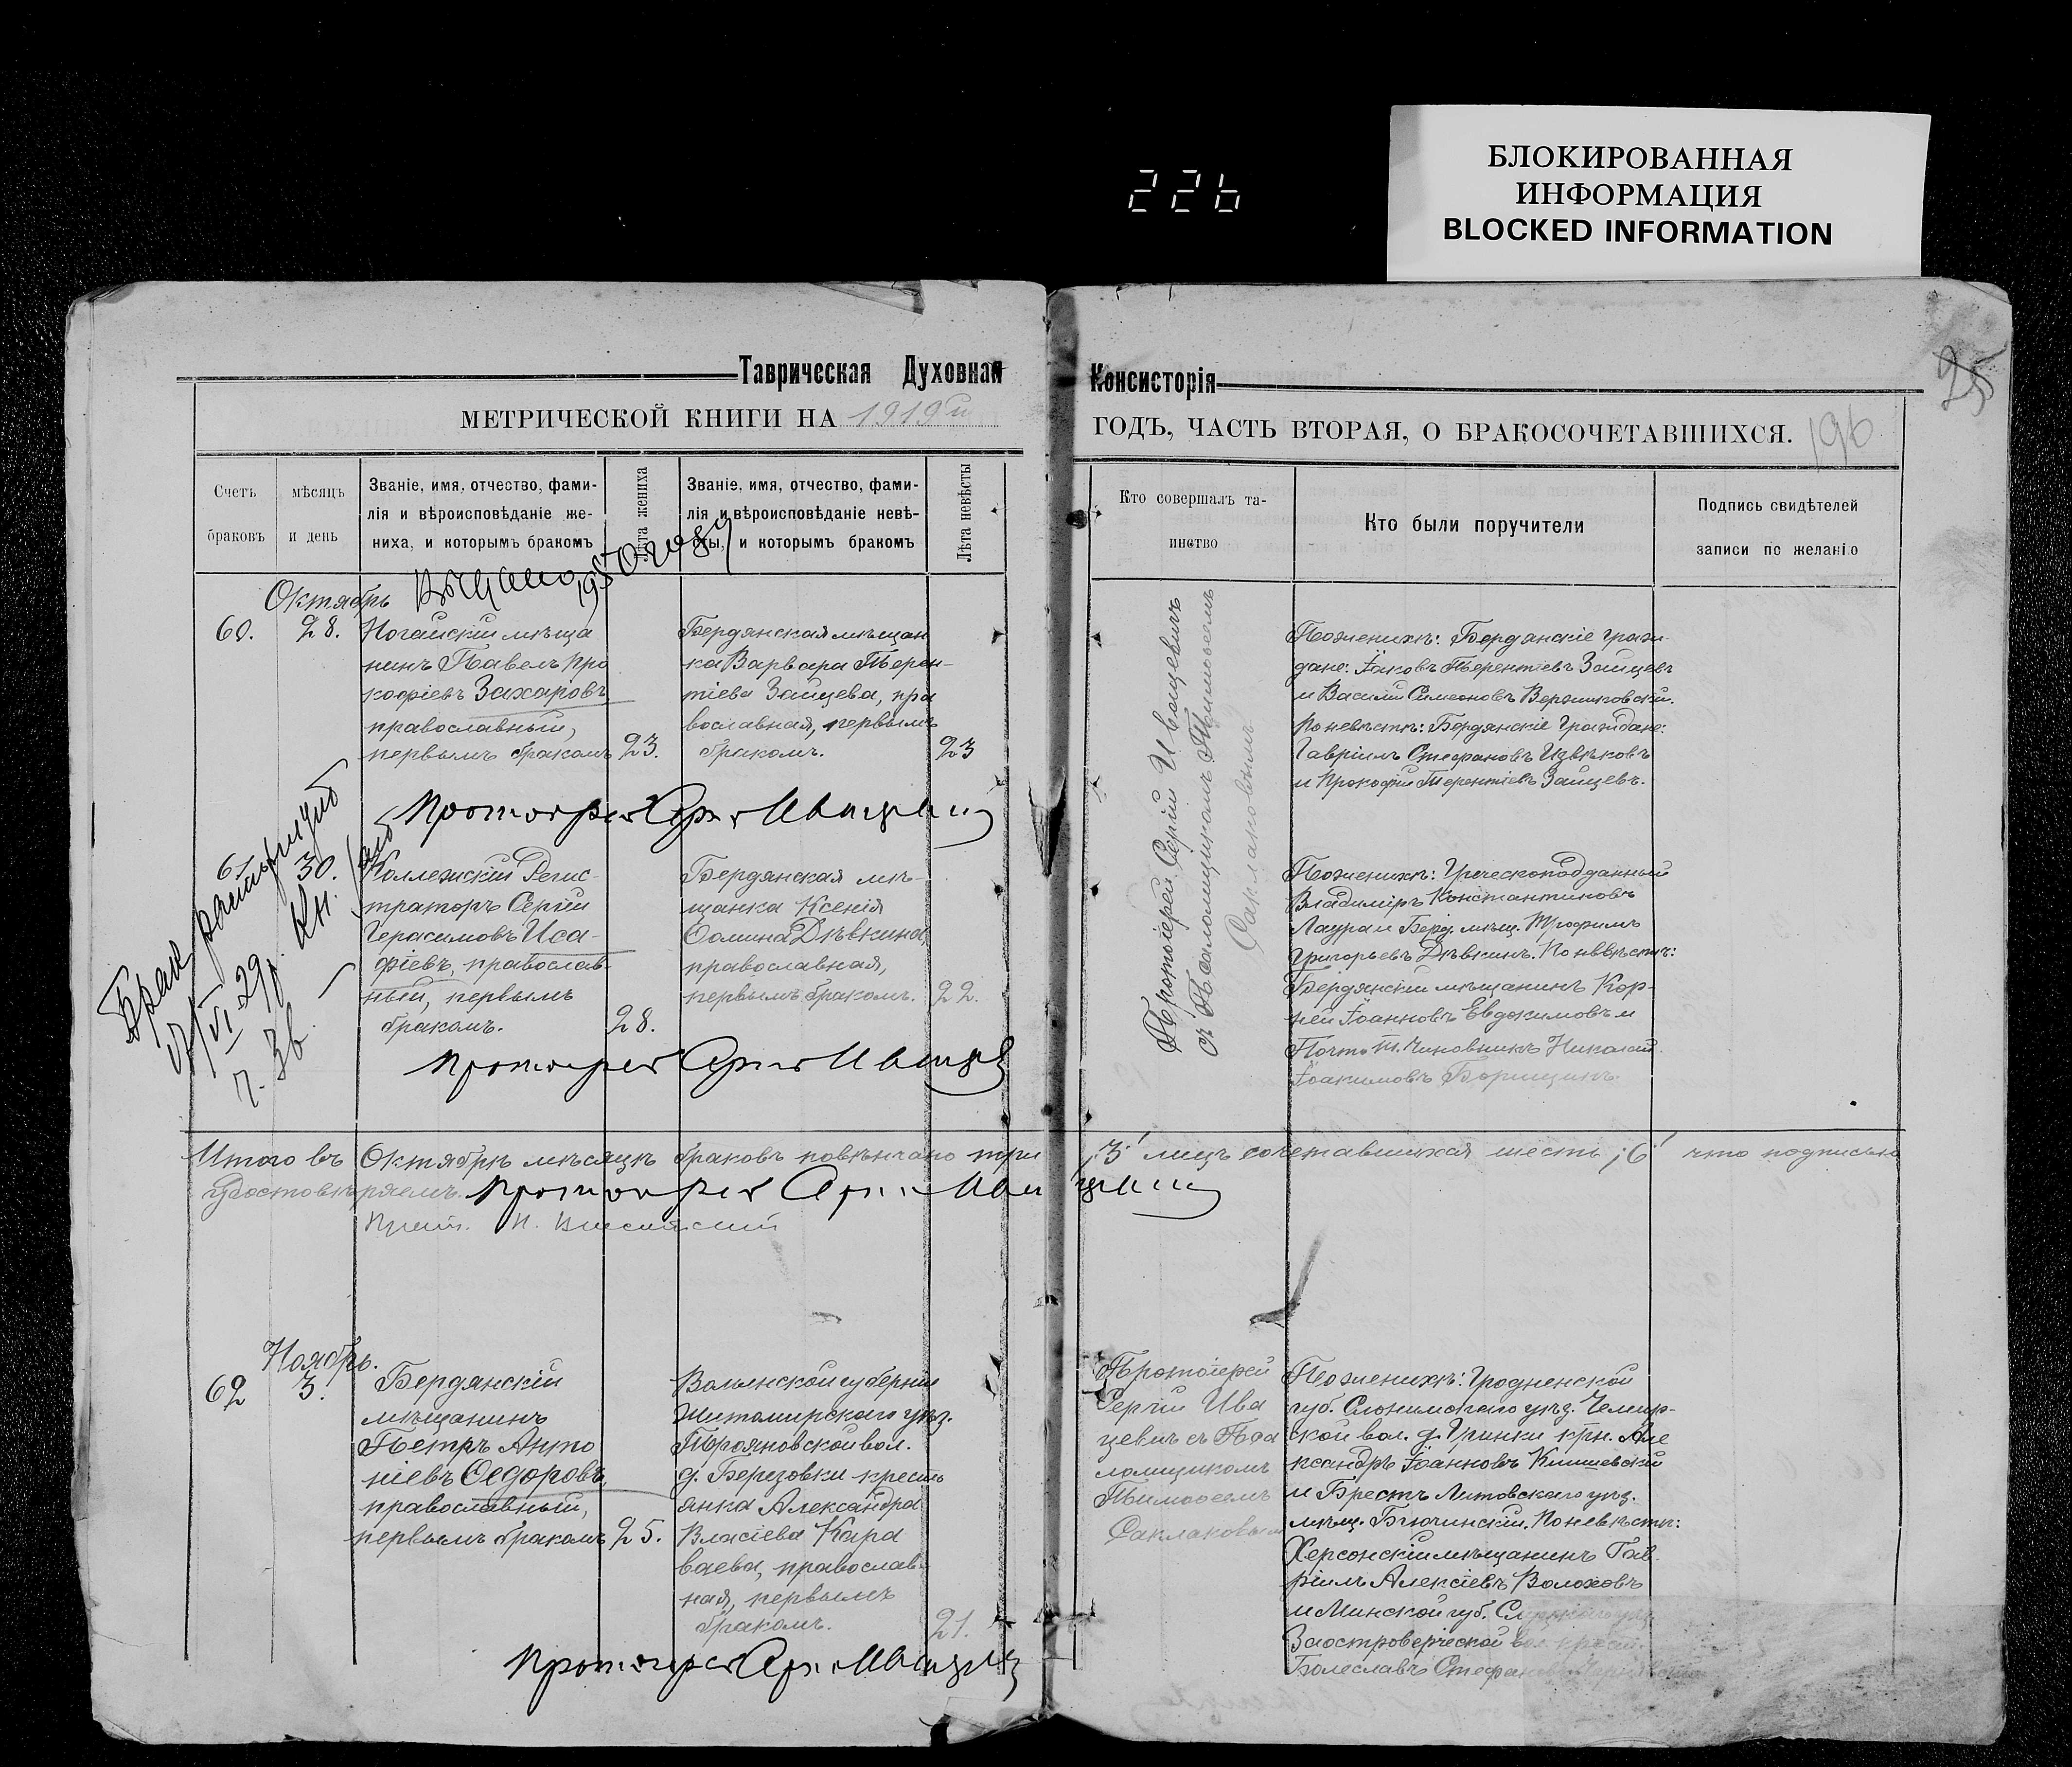 БЛОКИРОВАННАЯ
ИНФОРМАЦИЯ
BLOCKED INFORMATION
226
Таврическая Духовная Консисторія
25
МЕТРИЧЕСКОЙ КНИГИ НА 1919 ГОДЪ, ЧАСТЬ ВТОРАЯ, О БРАКОСОЧЕТАВШИХСЯ.
196
Счетъ
браковъ
мѣсяцъ
и день
Званіе, имя, отчество, фами-
лія и вѣроисповѣданіе же-
ниха, и которымъ бракомъ
Лѣта жениха
Званіе, имя, отчество, фами-
лія и вѣроисповѣданіе невѣ-
сты, и которымъ бракомъ
Лѣта невѣсты
Кто совершалъ та-
инство
Кто были поручители
Подпись свидѣтелей
записи по желанію
Октябрь
60.
28.
Ногайскій мѣща
нинъ Павелъ Про
кофіевъ Захаровъ
православный,
первымъ бракомъ
23.
Бердянская мѣщан
ка Варвара Терен-
тіева Зайцева, пра
вославная, первымъ
бракомъ.
23
Протоіерей Сергій Иващевичъ
съ Псаломщикомъ Тимоѳеемъ
Саклаковымъ
По женихѣ: Бердянскіе граж-
дане: Іаковъ Терентіевъ Зайцевъ
и Василій Симеоновъ Вержиковскій.
По невѣстѣ: Бердянскіе Граждане:
Гавріилъ Стефановъ Извѣковъ
и Прокофій Терентіевъ Зайцевъ.
Протоіерей Сергій Иващевичъ
Брак расторгнут
61.
30.
Коллежскій Регис-
траторъ Сергій
Герасимовъ Иса-
фіевъ, православ-
ный, первымъ
бракомъ.
28.
Бердянская мѣ-
щанка Ксенія
Ѳомина Дѣвкина,
православная,
первымъ бракомъ.
22.
По женихѣ: Греческоподданный
Владиміръ Константиновъ
Лаура и Берд. мѣщ. Трофимъ
Григорьевъ Дѣвкинъ. По невѣстѣ:
Бердянскій мѣщанинъ Кор-
ней Іоанновъ Евдокимовъ и
Почт. Т. Чиновникъ Николай
Іоакимовъ Борищинъ.
Протоіерей Сергій Иващевичъ
Итого въ Октябрѣ мѣсяцѣ браковъ повѣнчано три ;3; лицъ сочетавшихся шесть ;6; что подписью
удостовѣряемъ. Протоіерей Сергій Иващевичъ
Ноябрь.
62
3.
Бердянскій
мѣщанинъ
Петръ Анто
ніевъ Ѳедоровъ
православный,
первымъ бракомъ
25.
Волынской губерніи
Житомирскаго уѣз.
Трояновской вол.
д. Березовки кресть
янка Александра
Власіева Кара
ваева, православ-
ная, первымъ
бракомъ.
21.
Протоіерей
Сергій Ива
цевичъ съ Пса
ломщикомъ
Тимоѳеемъ
Саклаковымъ
По женихѣ: Гродненской
губ. Слонимскаго уѣзд. Чемер-
ской вол. д. Гринки крн. Але
ксандръ Іоанновъ Климшевскій
и Брестъ Литовскаго уѣз.
мѣщ. Бгючинскій. По невѣстѣ:
Херсонскій мѣщанинъ Гав-
ріилъ Алексіевъ Волоховъ
и Минской губ.
Заостровечской
Болеславъ
Протоіерей Сергій Иващевичъ